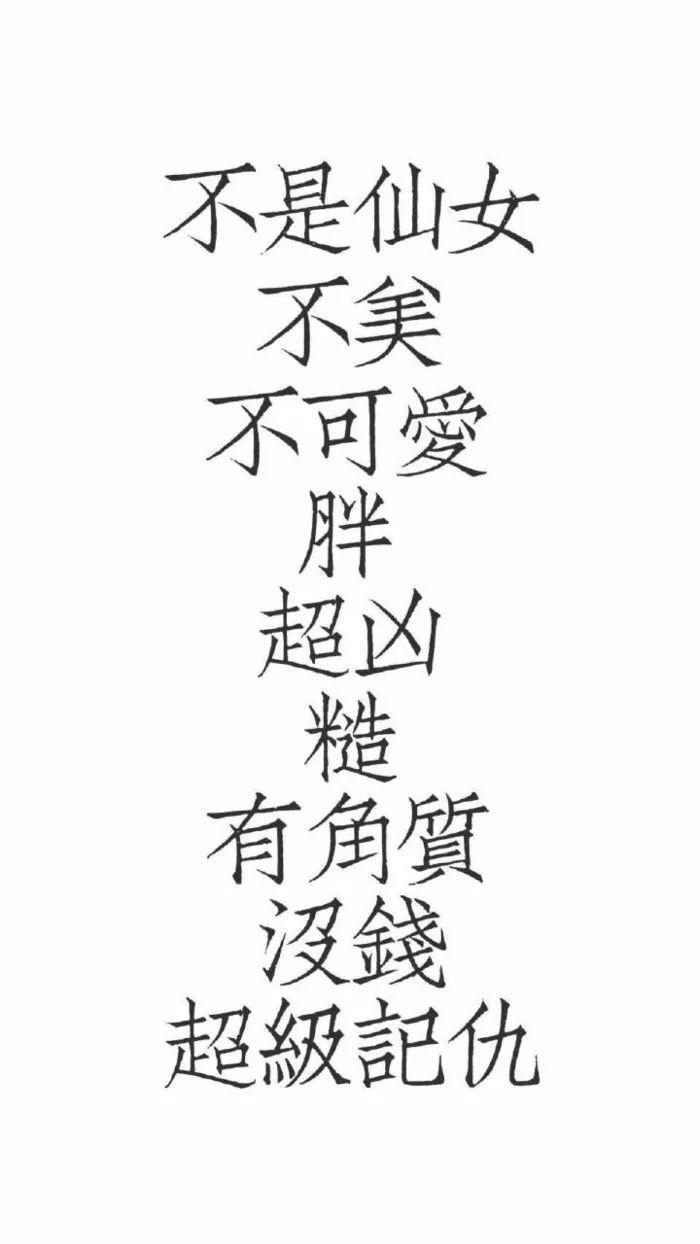 不是仙女
不美
不可愛
胖
超凶
糙
有角質
沒錢
超級記仇